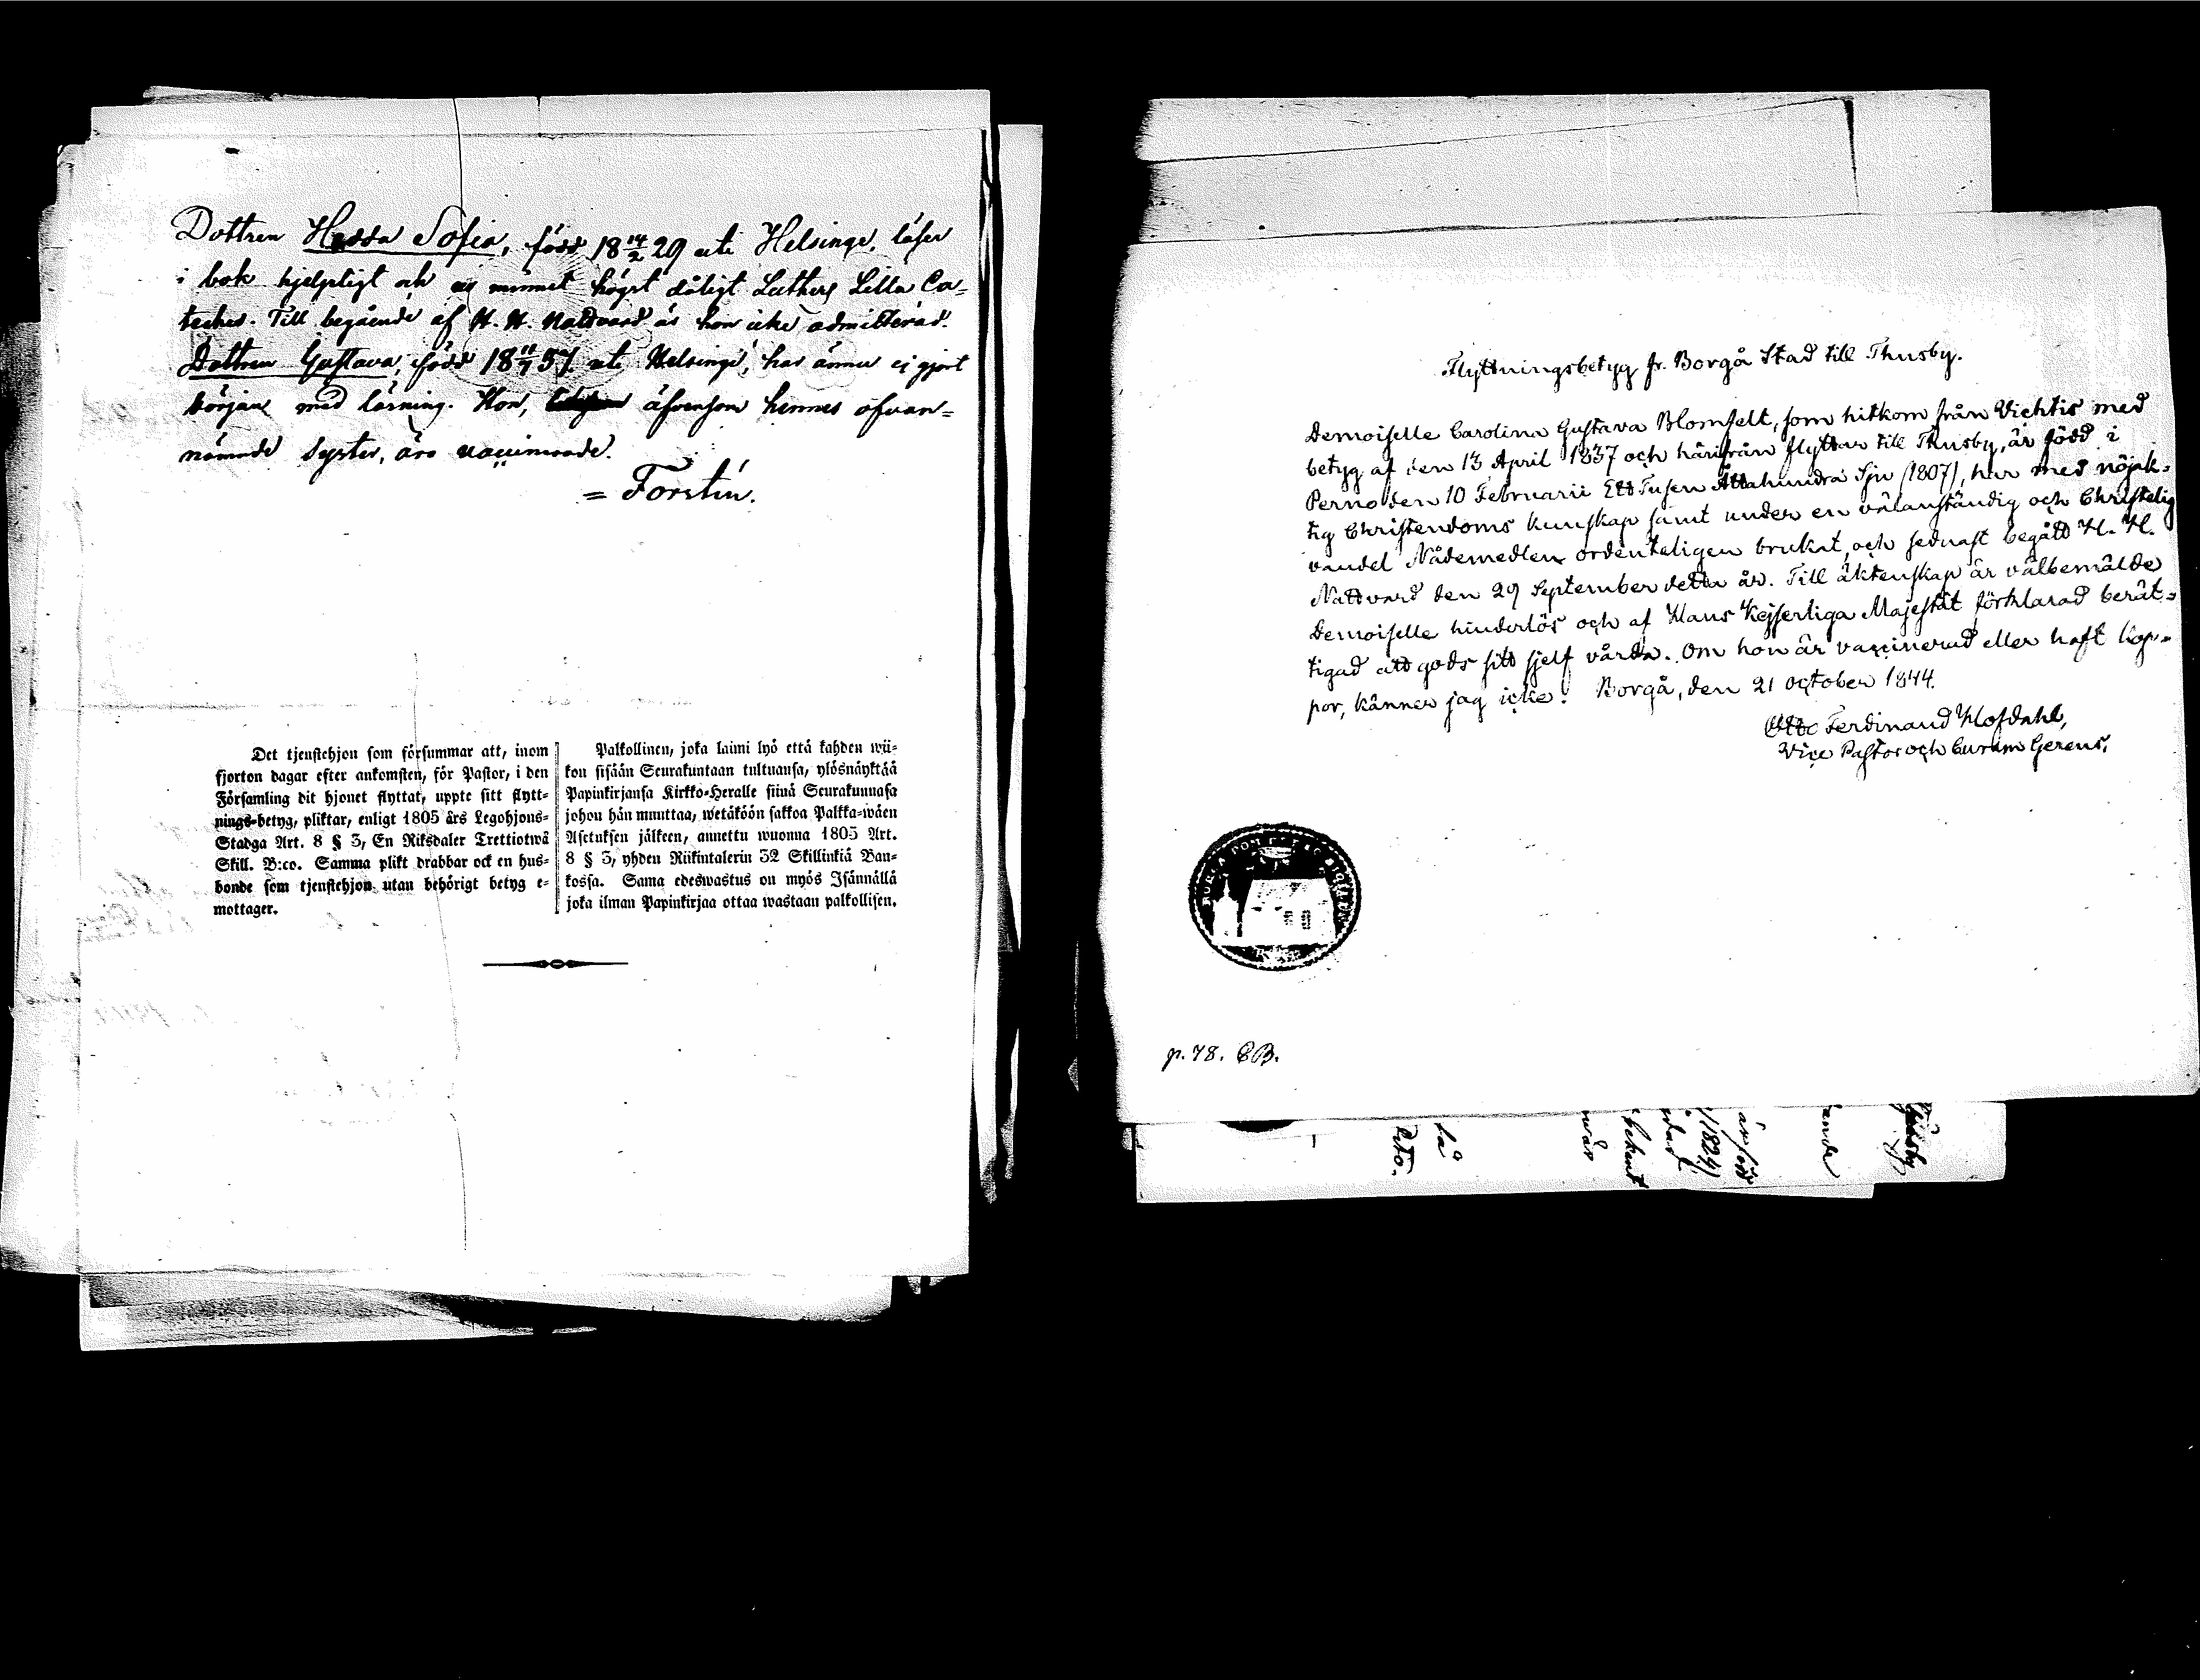 Dottren Hedda Sofia, född 18 14/2 29 uti Helsinge, läser
i bok hjelpligt och ur minnet högst dåligt Luthers Lilla Ca=
teches. Till begående af H. H. Nattvard är hon icke admitterad.
Dottren Gustava, född 18 11/7 37 uti Helsinge, har ännu ej gjort
början med läsning. Hon, äfvensom hennes ofvan=
nämnde syster, äro vaccinerade.
= Forstén.
Det tjenstehjon som försummar att, inom
fjorton dagar efter ankomsten, för Pastor, i den
Församling dit hjonet flyttat, uppte sitt flytt=
nings-betyg, pliktar, enligt 1805 års Legohjons=
Stadga Art. 8 § 3, En Riksdaler Trettiotwå
Skill. B:co. Samma plikt drabbar ock en hus=
bonde som tjenstehjon utan behörigt betyg e=
mottager.
Palkollinen, joka laimi lyö että kahden wii=
kon sisään Seurakuntaan tultuansa, ylösnäyktää
Papinkirjansa Kirkko-Heralle siinä Seurakunnasa
johon hän muuttaa, wetäköön sakkoa Palkka-wäen
Asetuksen jälkeen, annettu wuonna 1805 Art.
8 § 3, yhden Riikintalerin 32 Skillinkiä Ban=
kossa. Sama edeswastus on myös Isännällä
joka ilman Papinkirjaa ottaa wastaan palkollisen.
Flyttningsbetyg fr. Borgå Stad till Thusby.
Demoiselle Carolina Gustava Blomfelt, som hitkom från Vichtis med
betyg af den 13 April 1837 och härifrån flyttar till Thusby, är född i
Perno den 10 Februarii Ett Tusen Åttahundra Sju (1807), har med nöjak=
tig Christendoms kunskap samt under en välanständig och Christelig
vandel Nådemedlen ordenteligen brukat, och sednast begått H. H.
Nattvard den 29 September detta år. Till äktenskap är välbemälde
Demoiselle hinderlös och af Hans Kejserliga Majestät förklarad berät=
tigad att gods sitt sjelf vårda. Om hon är vaccinerad eller haft kop=
por, känner jag icke. Borgå, den 21 October 1844.
Otto Ferdinand Hofdahl,
Vice Pastor och Curam Gerens.
p. 78. CB.